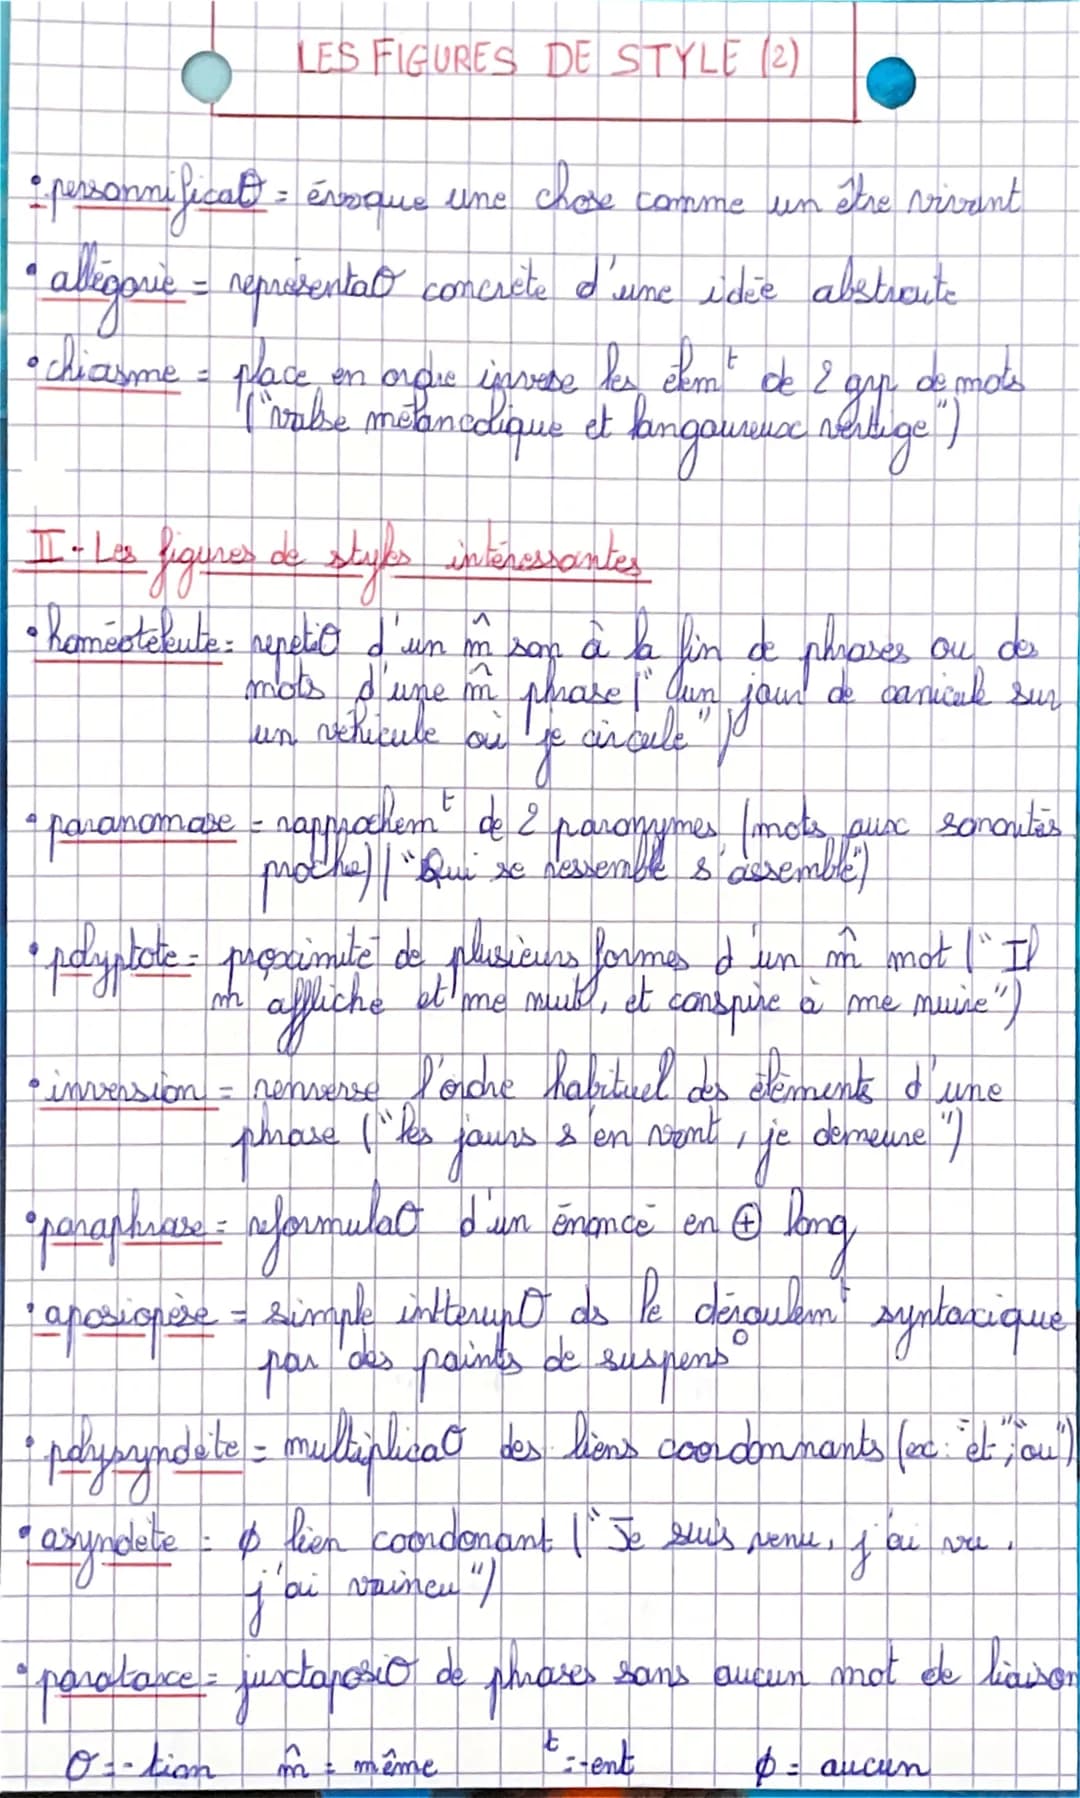 LES FIGURES DE STYLE (2)
• personnificatθ = évoque une chose comme un être vivant
• allégorie = représentatθ concrète d'une idée abstraite
• chiasme = place en ordre inverse les élemᵗ de 2 grp de mots
("valse mélancolique et langoureux vertige")
II - Les figures de styles intéressantes
• homéotéleute = repetiθ d'un m̂ son à la fin de phrases ou des
mots d'une m̂ phrase ("un jour de canicule sur
un véhicule où je circule")
• paranomase = rapprochemᵗ de 2 paronymes (mots aux sonorités
proche) ("Qui se ressemble s'assemble")
• polyptote = proximité de plusieurs formes d'un m̂ mot ("Il
m'affliche et me nuit, et conspire à me nuire")
• inversion = renverse l'ordre habituel des éléments d'une
phrase ("les jours s'en vont, je demeure")
• paraphrase = reformulatθ d'un énoncé en ⊕ long
• aposiopèse = simple intterupθ ds le déroulemᵗ syntaxique
par des points de suspens°
• polysyndète = multiplicatθ des liens coordonnants (ex: "et"; "ou")
• asyndète = ϕ lien coordonant ("Je suis venu, j'ai vu,
j'ai vaincu")
• parataxe = juxtaposiθ de phrases sans aucun mot de liaison
θ = -tion m̂ = même ᵗ = -ent ϕ = aucun